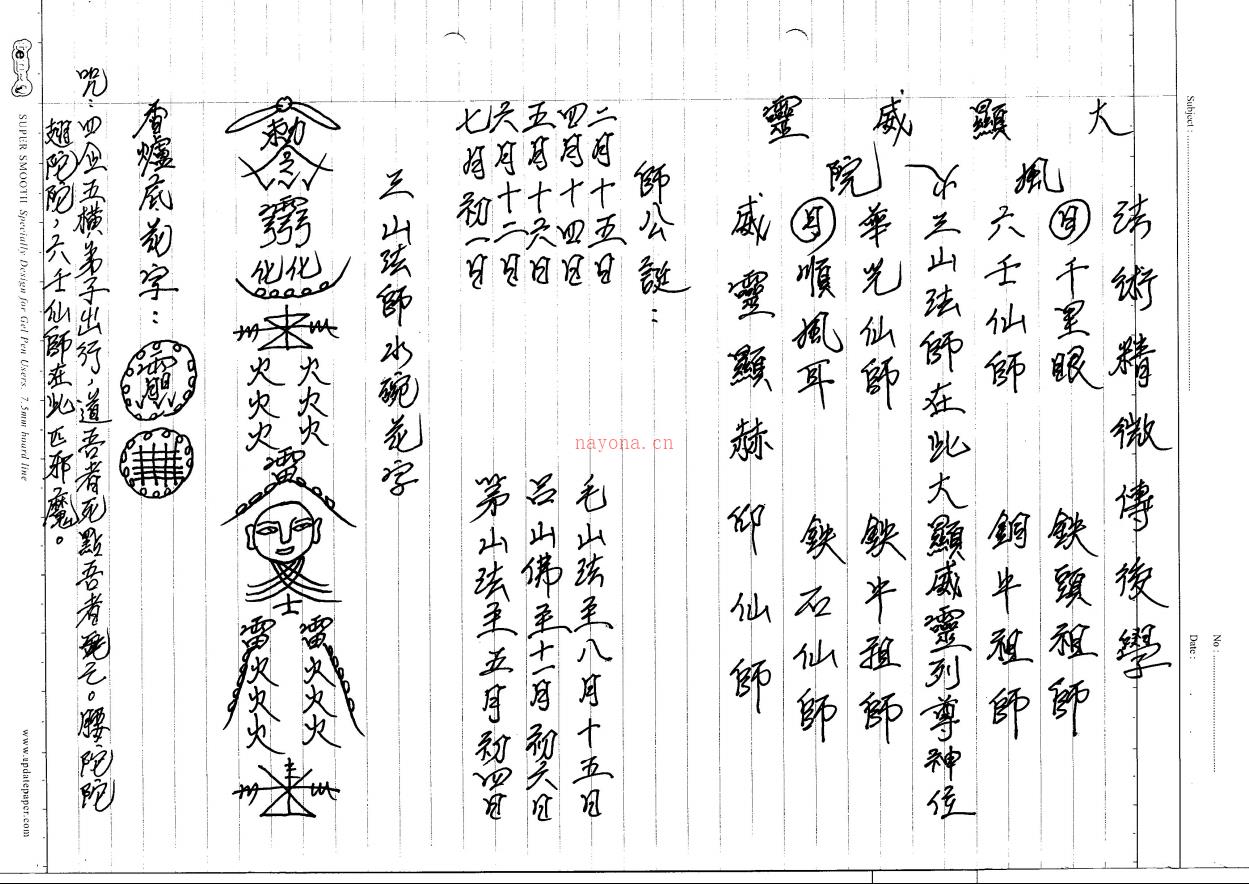 大顯威靈
風火院
法術精微傳後學
日千里眼 鉄頭祖師
六壬仙師 銅牛祖師
三山法師在此大顯威靈列尊神位
華光仙師 鉄牛祖師
月順風耳 鉄石仙師
威靈顯赫仰仙師
師公誕：
二月十五日 毛山法主八月十五日
四月十四日
五月十六日 呂山佛主十一月初六日
六月十二日
七月初一日 茅山法主五月初四日
三山法師水碗花字
勅
化化
火火
火火
火火
雷
士
雷雷
火火
火火
火火
香爐底花字：
咒：四企五橫弟子出行，道吾者死點吾者亡。腰陀陀
翅陀陀，六壬仙師在此匹邪魔。
Subject :
No :
Date :
SUPER SMOOTH Specially Design for Gel Pen Users. 7.5mm hoard line
www.updatepaper.com
nayona.cn